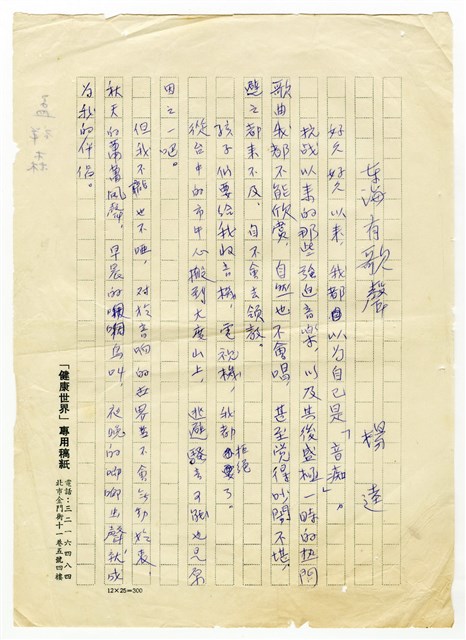 東海有歌聲
楊逵
好久好久以來，我都自以為自己是「音痴」。
抗战以來的那些強迫音樂，以及其後盛極一時的熱門
歌曲我都不能欣赏，自然也不會唱，甚至覺得吵鬧不堪，
避之都来不及，自不會去領教。
孩子们要給我收音機，電視機，我都拒絕了。
從台中的市中心搬到大度山上，逃避騷音可能也是原
因之一吧。
但我不聾也不啞，对於音响的世界並不會無動於衷，
秋天的蕭蕭風聲，早晨的嘓嘓鸟叫，夜晚的唧唧虫聲，就成
为我的伴侣。
「健康世界」專用稿紙
電話：三二一六四八四
北市金門街十一巷五號四樓
12×25=300